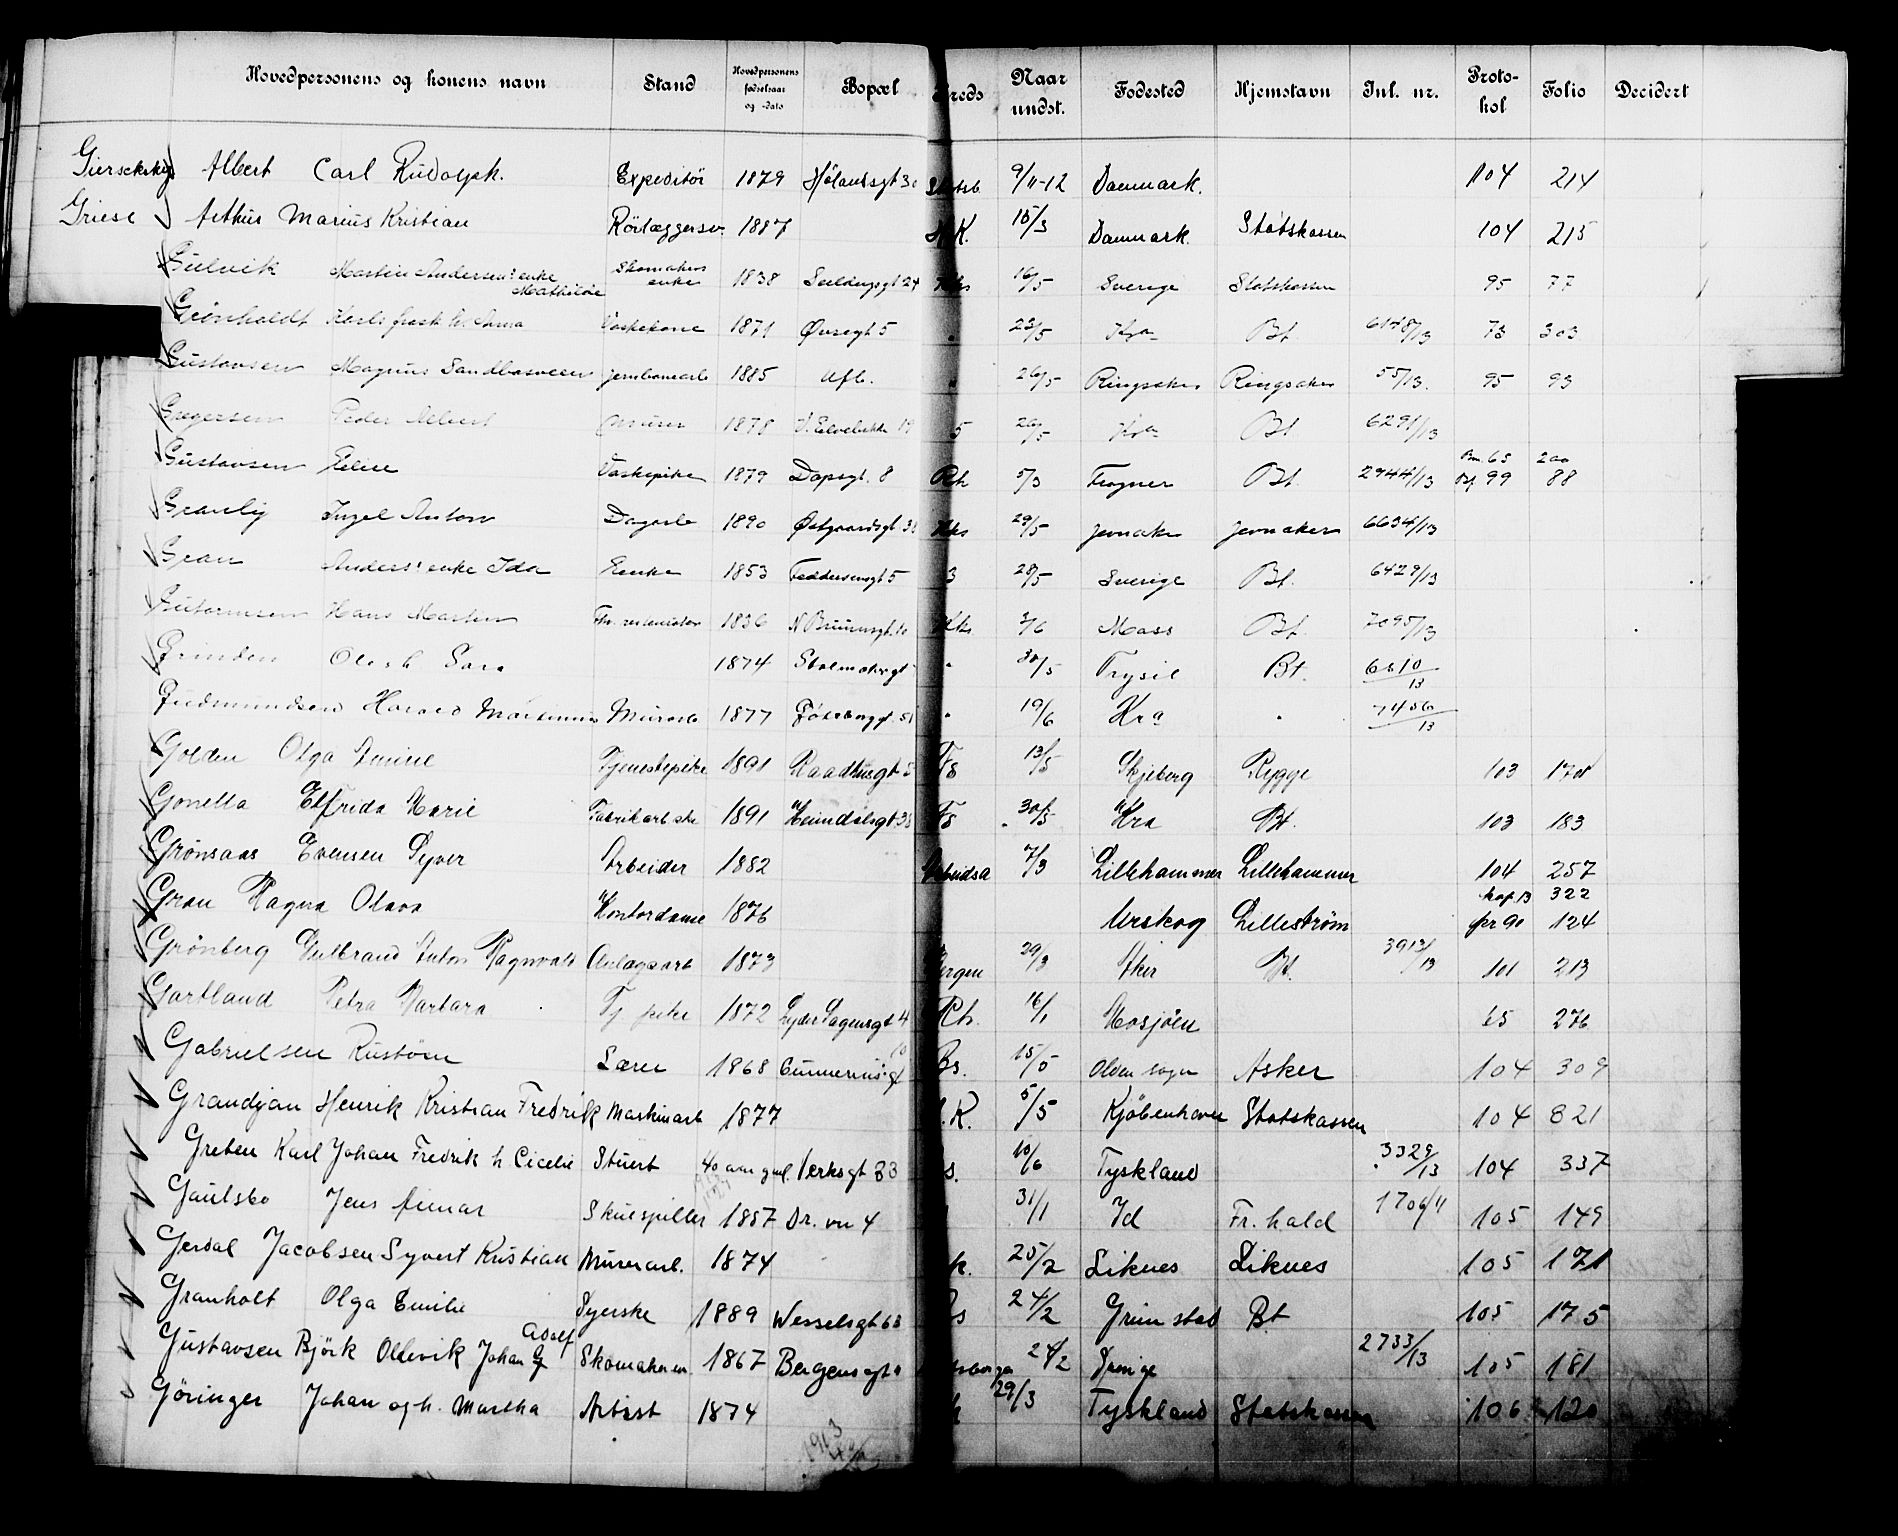 Hovedpersonens og konens navn Stand Hovedpersonens fødselsaar og -dato Bopæl Kreds Naar undst. Fødested Hjemstavn Inl. nr. Proto- kol Folio Decidert
Albert Carl Rudolph. Expeditör 1879 Hölandsgt 30 9/11-12 Danmark. 104 214
Griese Arthur Marius Kristian Rörlæggersv. 1887 15/3 Danmark. Statskassen 104 215
Gulvik Martin Andersens enke Mathilde Skomakers enke 1838 Seilduksgt 24 16/5 Sverige Statskassen 95 77
Grönholdt Karls frask. h. Anna Vaskekone 1871 Øvregt 5 " 23/5 Kra Bt 6148/13 73 303
Gustavsen Magnus Sandbasveen Jernbanearb 1885 Ufb. " 26/5 Ringsaker Ringsaker 55/13. 95 93
Gregersen Peder Albert Murer 1878 V. Elvebakke 19 5 26/5 Kra Bt 6291/13
Gustavsen Eline Vaskepike 1879 Dopsgt. 8 Rh 5/3 Frogner Bt. 2944/13 99 88
65 200
Granly Ingel Anton Dagarb 1890 Østgaardsgt 29/5 Jevnaker Jevnaker 6634/13
Gran Anders' enke Ida Enke 1853 Feddersensgt 5 3 28/5 Sverige Bt. 6429/13
Gutormsen Hans Martin 1836 N Bruunsgt. 10 3/6 Moss Bt. 7095/13
Grinden Ole's h. Sara 1874 Stolmakergt " 30/5 Trysil Bt. 6610/13
Gudmundsen Harald Martinius Murarb 1877 Göteborggt. 51 " 19/6 Kra " 7456/13
Golden Olga Amine Tjenestepike 1891 Raadhusgt Fs 13/5 Skjeberg Rygge 103 170
Gonella Elfrida Marie Fabrikarbske 1891 Heimdalsgt 38 Fs 30/5 Kra Bt. 103 183
Grønsaas Evensen Syver Arbeider 1882 7/3 Lillehammer Lillehammer 104 257
Gran Ragna Olava Kontordame 1876 Urskog Lilleström kop.13 322 pr 90 124
Grönberg Gulbrand Anton Ragnvald Anlægsarb 1873 Bergen 29/3 Aker Bt. 3913/13 101 213
Gartland Petra Barbara Tj pike 1872 Lyder Sagensgt 4 Rh. 16/1 Mosjöen 65 276
Gabrielsen Rustöen Lærer 1868 Gunnerius gt 10 Bs. 15/5 Olden sogn Asker 104 309
Grandjan Henrik Kristian Fredrik Maskinarb 1877 K. 5/5 Kjöbenhavn Statskassen 104 321
Greten Karl Johan Fredrik h. Cicelie Stuert 40 aar gml. Verksgt 33 10/6 Tyskland 3329/13 104 337
Gaulsbo Jens Einar Skuespiller 1887 Dr. vn 4 31/1 Id Fr.hald 1706/11 105 149
Gerdal Jacobsen Syvert Kristian Murerarb. 1874 25/2 Liknes Liknes 105 171
Granholt Olga Emilie Syerske 1889 Wesselsgt 6 24/2 Grimstad Bt 105 175
Gustavsen Björk Ollevik Johan Adolf G Skomakersv. 1867 Bergensgt 24/2 Sverige 2733/13 105 181
Göringer Johan og h. Martha Artist 1874 29/3 Tyskland Statskassen 106 120
1913